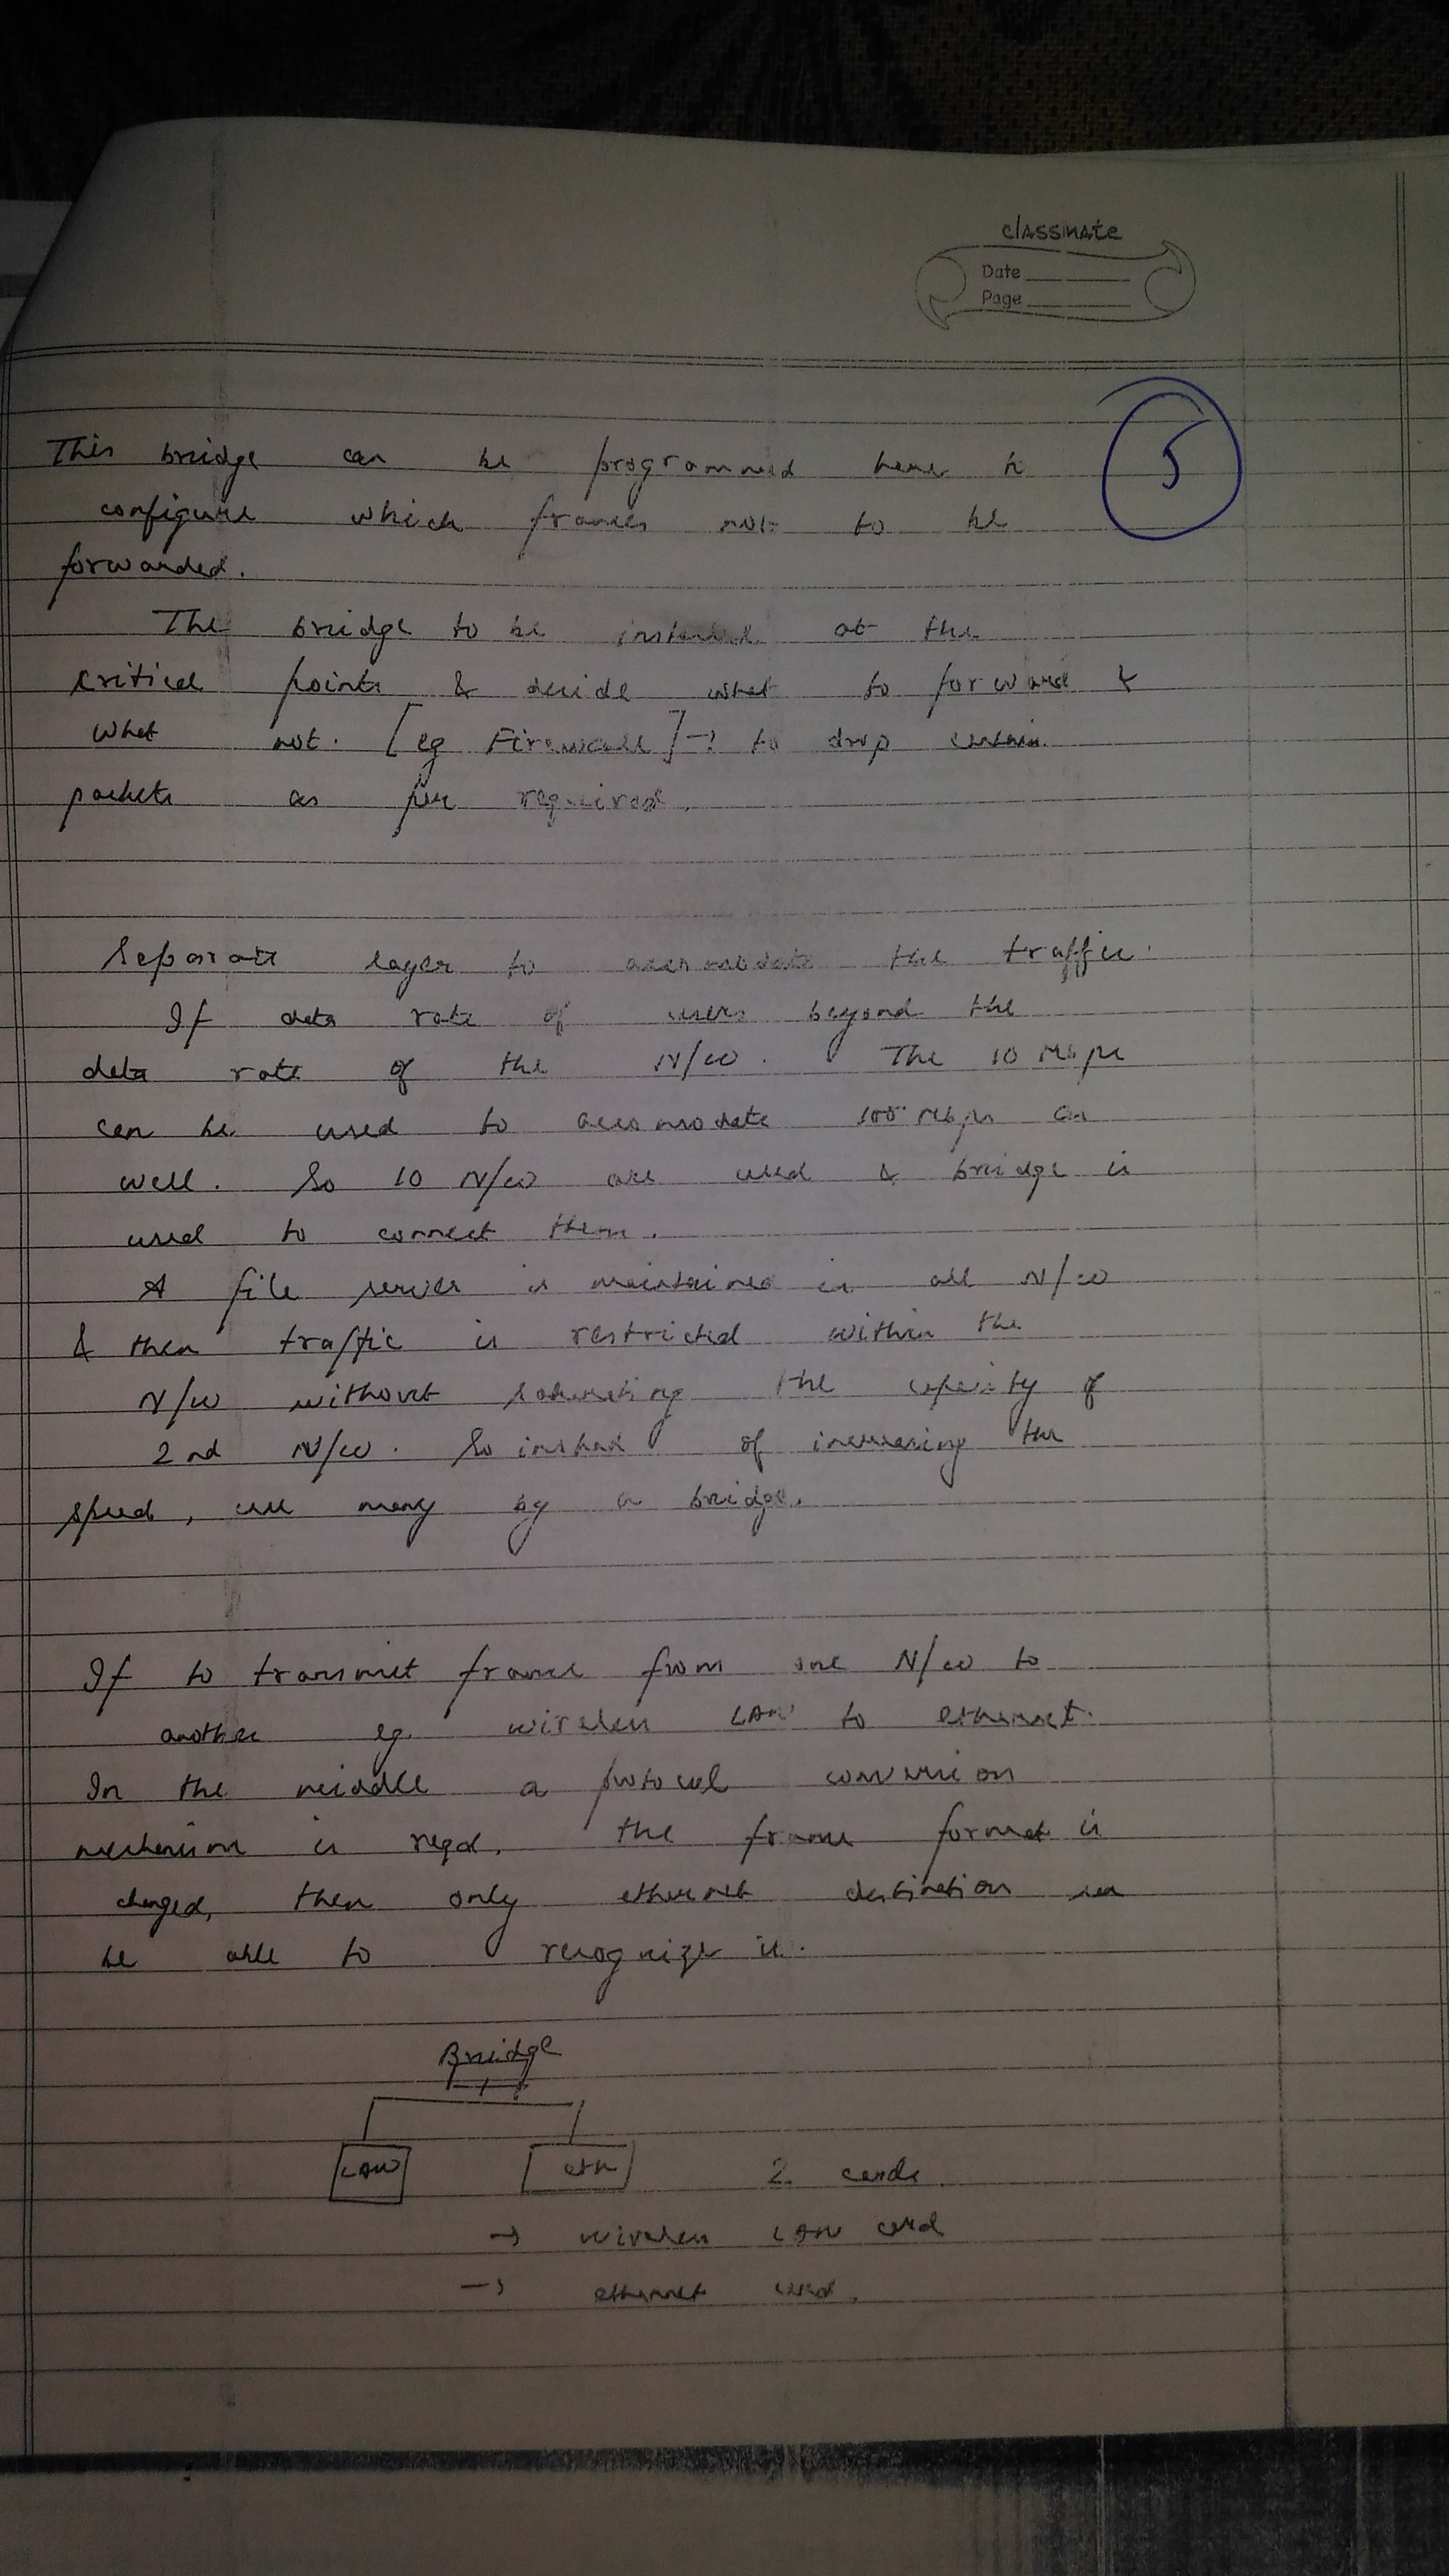 classmate
Date
Page
5
This bridge can be programmed here to
configure which frames not to be
forwarded.
The bridge to be installed at the
critical points & decide what to forward &
what not. [eg Firewall] → to drop certain
packets as per required.
Separate layer to accomodate the traffic.
If data rate of users beyond the
data rate of the N/w. The 10 Mbps
can be used to accomodate 100 Mbps as
well. So 10 N/w are used & bridge is
used to connect them.
A file server is maintained in all N/w
& then traffic is restricted within the
N/w without the capacity of
2nd N/w. So instead of increasing the
speed, use many by a bridge.
If to transmit frame from one N/w to
another eg. wireless LAN to ethernet.
In the middle a protocol conversion
mechanism is reqd. the frame format is
changed, then only ethernet destination can
be able to recognize it.
Bridge
LAN eth 2 cards
→ wireless LAN card
→ ethernet card.